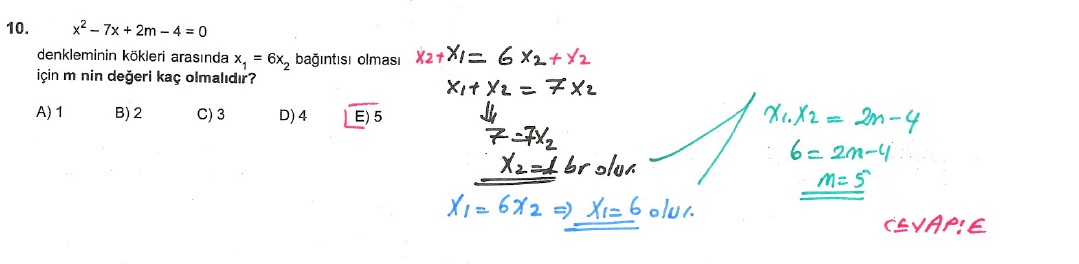 10. x² – 7x + 2m – 4 = 0
denkleminin kökleri arasında x₁ = 6x₂ bağıntısı olması
için m nin değeri kaç olmalıdır?
A) 1 B) 2 C) 3 D) 4 E) 5
x₂+x₁ = 6x₂+x₂
x₁+x₂ = 7x₂
⇓
7=7x₂
x₂=1 br olur.
x₁ = 6x₂ ⇒ x₁=6 olur.
x₁.x₂ = 2m-4
6 = 2m-4
m=5
CEVAP:E